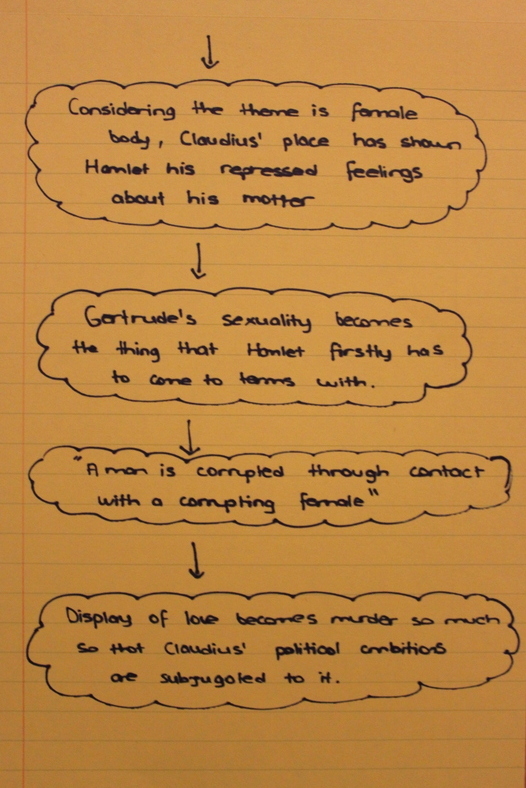 Considering the theme is female
body, Claudius' place has shown
Hamlet his repressed feelings
about his mother
Gertrude's sexuality becomes
the thing that Hamlet firstly has
to come to terms with.
"A man is corrupted through contact
with a corrupting female"
Display of love becomes murder so much
so that Claudius' political ambitions
are subjugated to it.